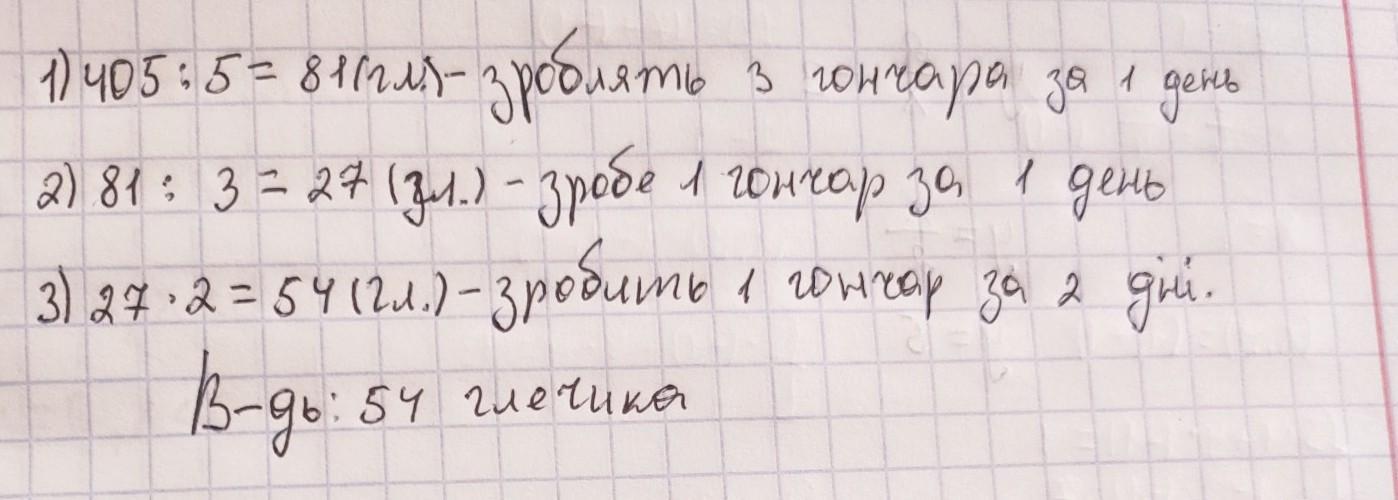 1) 405 : 5 = 81 (гл.) - зроблять 3 гончара за 1 день
2) 81 : 3 = 27 (гл.) - зробе 1 гончар за 1 день
3) 27 · 2 = 54 (гл.) - зробить 1 гончар за 2 дні.
В-дь: 54 глечика